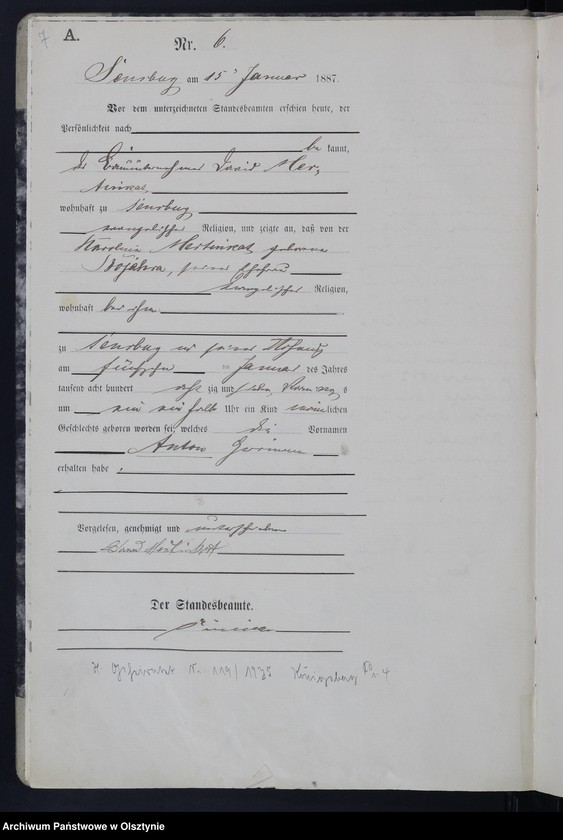 7 A.
Nr. 6.
Sensburg am 15 Januar 1887.
Vor dem unterzeichneten Standesbeamten erschien heute, der
Persönlichkeit nach
be kannt,
der Bauunternehmer David Mer-
tinkat,
wohnhaft zu Sensburg
evangelischer Religion, und zeigte an, daß von der
Karoline Mertinkat geborene
seiner Ehefrau
evangelischer Religion,
wohnhaft bei ihm
zu Sensburg in seiner Wohnung
am fünfzehn ten Januar des Jahres
tausend acht hundert acht zig und sieben Vormittag s
um ein ein halb Uhr ein Kind männlichen
Geschlechts geboren worden sei, welches die Vornamen
Anton Hermann
erhalten habe
Vorgelesen, genehmigt und unterschrieben
David Mertinkat
Der Standesbeamte.
N. 119/1935 Königsberg Pr. 4
Archiwum Państwowe w Olsztynie